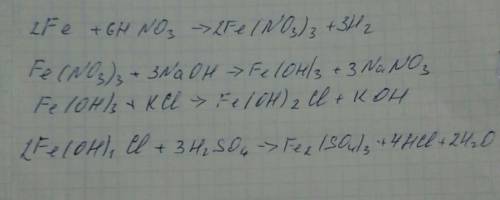 2Fe + 6H NO3 → 2Fe(NO3)3 + 3H2
Fe(NO3)3 + 3NaOH → Fe(OH)3 + 3NaNO3
Fe(OH)3 + KCl → Fe(OH)2Cl + KOH
2Fe(OH)2 Cl + 3H2SO4 → Fe2(SO4)3 + 4HCl + 2H2O